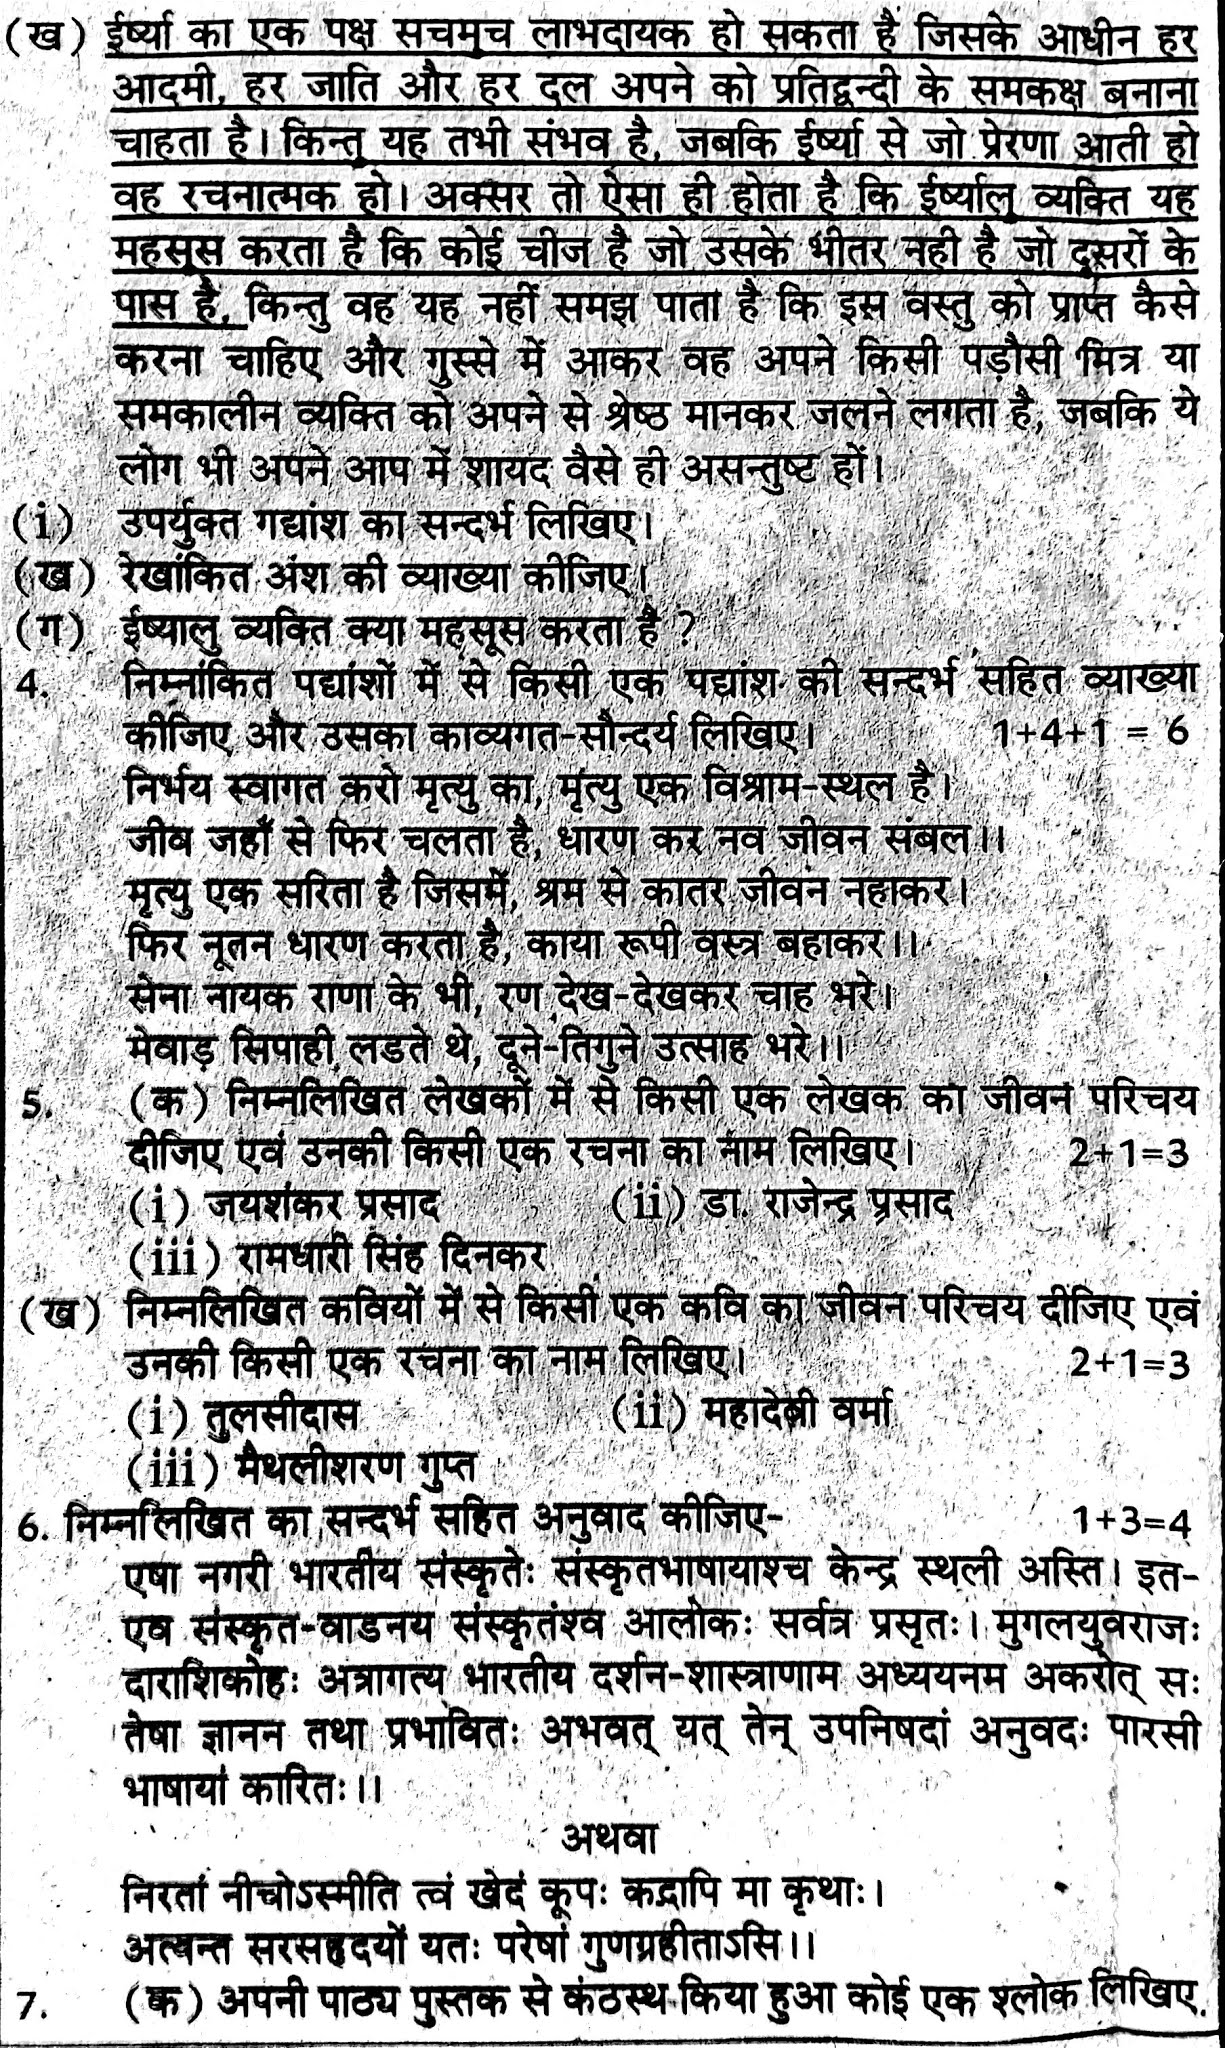 (ख) ईर्ष्या का एक पक्ष सचमुच लाभदायक हो सकता है जिसके आधीन हर
आदमी, हर जाति और हर दल अपने को प्रतिद्वन्दी के समकक्ष बनाना
चाहता है। किन्तु यह तभी संभव है, जबकि ईर्ष्या से जो प्रेरणा आती हो
वह रचनात्मक हो। अक्सर तो ऐसा ही होता है कि ईर्ष्यालु व्यक्ति यह
महसूस करता है कि कोई चीज है जो उसके भीतर नही है जो दूसरों के
पास है, किन्तु वह यह नहीं समझ पाता है कि इस वस्तु को प्राप्त कैसे
करना चाहिए और गुस्से में आकर वह अपने किसी पड़ौसी मित्र या
समकालीन व्यक्ति को अपने से श्रेष्ठ मानकर जलने लगता है, जबकि ये
लोग भी अपने आप में शायद वैसे ही असन्तुष्ट हों।
(i) उपर्युक्त गद्यांश का सन्दर्भ लिखिए।
(ख) रेखांकित अंश की व्याख्या कीजिए।
(ग) ईष्यालु व्यक्ति क्या महसूस करता है ?
4. निम्नांकित पद्यांशों में से किसी एक पद्यांश की सन्दर्भ सहित व्याख्या
कीजिए और उसका काव्यगत-सौन्दर्य लिखिए। 1+4+1 = 6
निर्भय स्वागत करो मृत्यु का, मृत्यु एक विश्राम-स्थल है।
जीव जहाँ से फिर चलता है, धारण कर नव जीवन संबल।।
मृत्यु एक सरिता है जिसमें, श्रम से कातर जीवन नहाकर।
फिर नूतन धारण करता है, काया रूपी वस्त्र बहाकर।।
सेना नायक राणा के भी, रण देख-देखकर चाह भरे।
मेवाड़ सिपाही लडते थे, दूने-तिगुने उत्साह भरे।।
5. (क) निम्नलिखित लेखकों में से किसी एक लेखक का जीवन परिचय
दीजिए एवं उनकी किसी एक रचना का नाम लिखिए। 2+1=3
(i) जयशंकर प्रसाद (ii) डा. राजेन्द्र प्रसाद
(iii) रामधारी सिंह दिनकर
(ख) निम्नलिखित कवियों में से किसी एक कवि का जीवन परिचय दीजिए एवं
उनकी किसी एक रचना का नाम लिखिए। 2+1=3
(i) तुलसीदास (ii) महादेवी वर्मा
(iii) मैथलीशरण गुप्त
6. निम्नलिखित का सन्दर्भ सहित अनुवाद कीजिए- 1+3=4
एषा नगरी भारतीय संस्कृतेः संस्कृतभाषायाश्च केन्द्र स्थली अस्ति। इत-
एव संस्कृत-वाडनय संस्कृतंश्व आलोकः सर्वत्र प्रसृतः। मुगलयुवराजः
दाराशिकोहः अत्रागत्य भारतीय दर्शन-शास्त्राणाम अध्ययनम अकरोत् सः
तेषा ज्ञानन तथा प्रभावितः अभवत् यत् तेन् उपनिषदां अनुवदः पारसी
भाषायां कारितः।।
अथवा
निरतां नीचोऽस्मीति त्वं खेदं कूपः कदापि मा कृथाः।
अत्यन्त सरसहृदयों यतः परेषां गुणग्रहीताऽसि।।
7. (क) अपनी पाठ्य पुस्तक से कंठस्थ किया हुआ कोई एक श्लोक लिखिए,